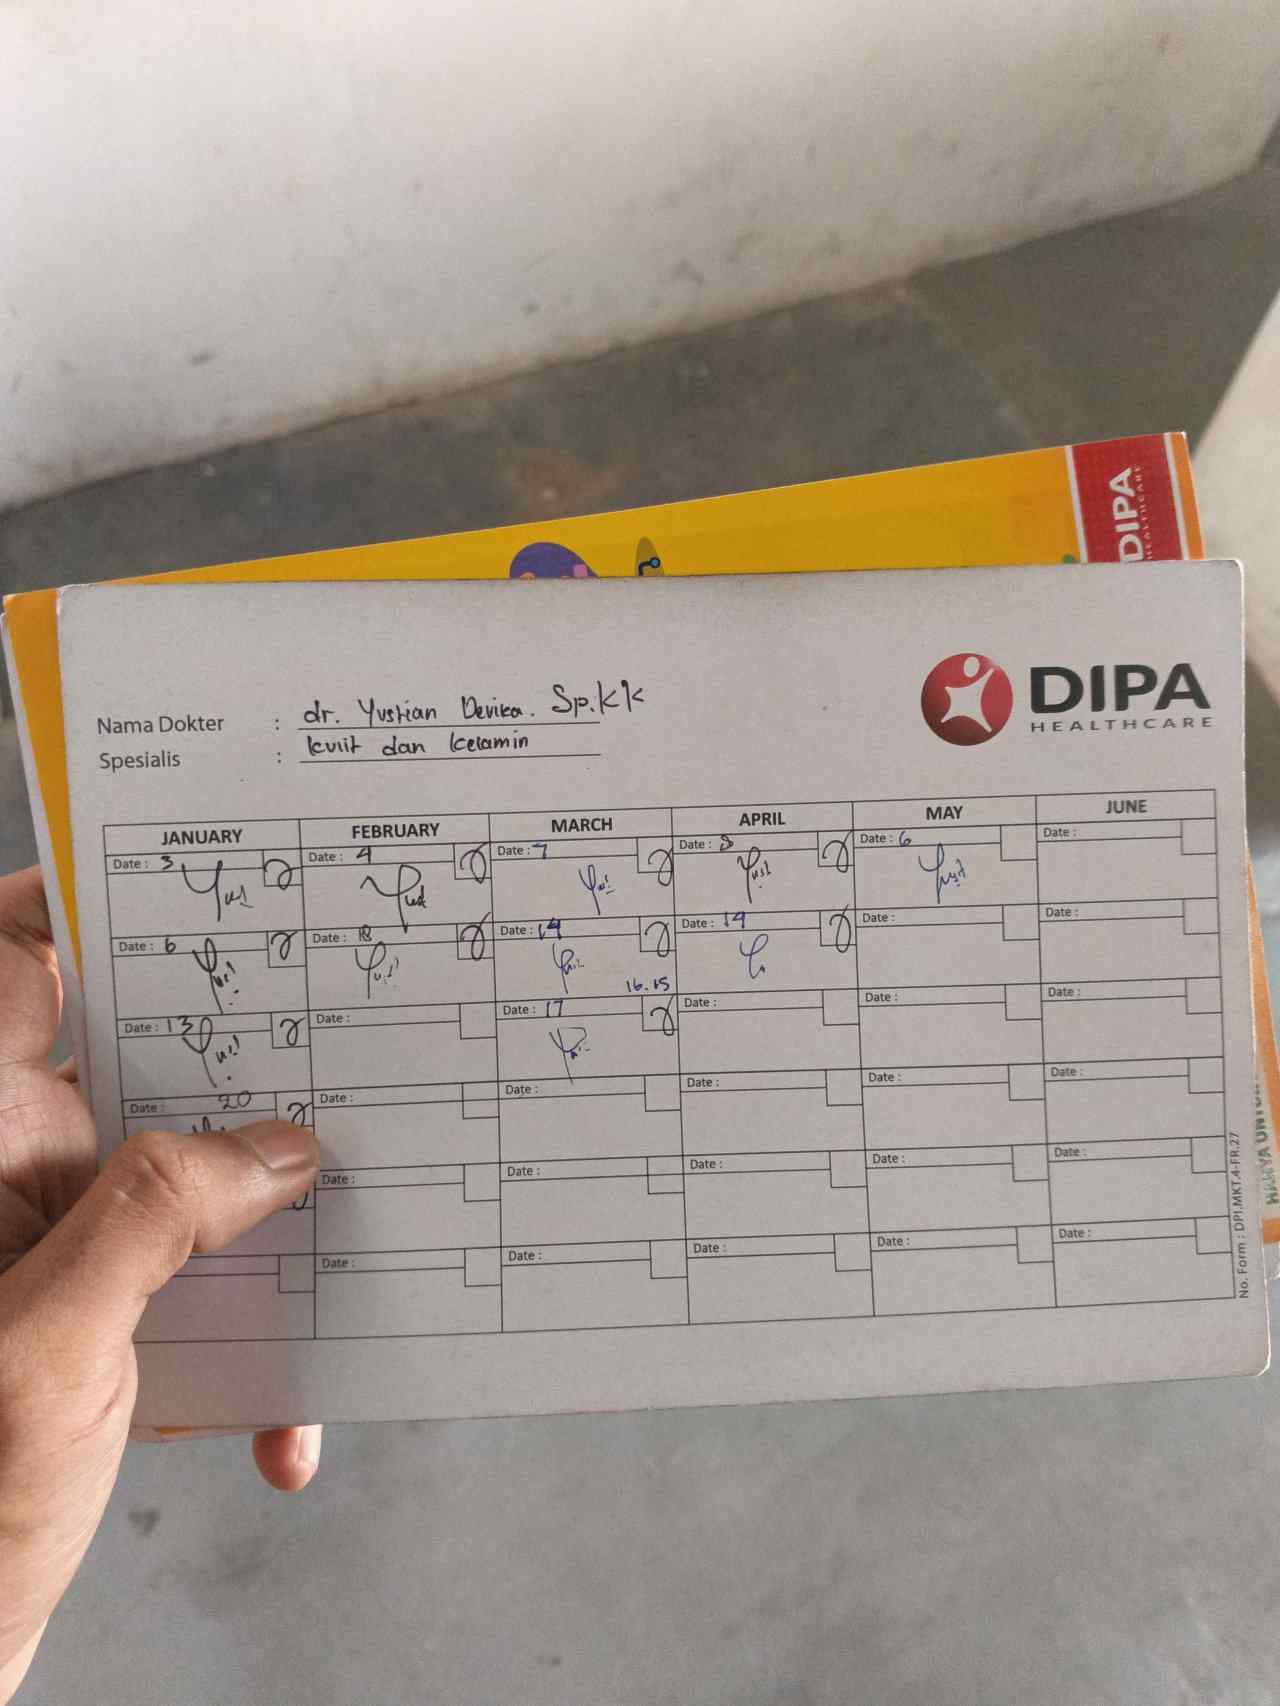 DIPA
HEALTHCARE
DIPA
HEALTHCARE
Nama Dokter : dr. Yustian Devika. Sp.KK
Spesialis : kulit dan kelamin
JANUARY FEBRUARY MARCH APRIL MAY JUNE
Date : 3 Date : 4 Date : 7 Date : 8 Date : 6 Date :
Date : 6 Date : 18 Date : 14 Date : 14 Date : Date :
16.15
Date : 13 Date : Date : 17 Date : Date : Date :
Date : 20 Date : Date : Date : Date : Date :
Date : Date : Date : Date : Date :
Date : Date : Date : Date : Date :
No. Form : DPI.MKT.4-FR.27
HANYA